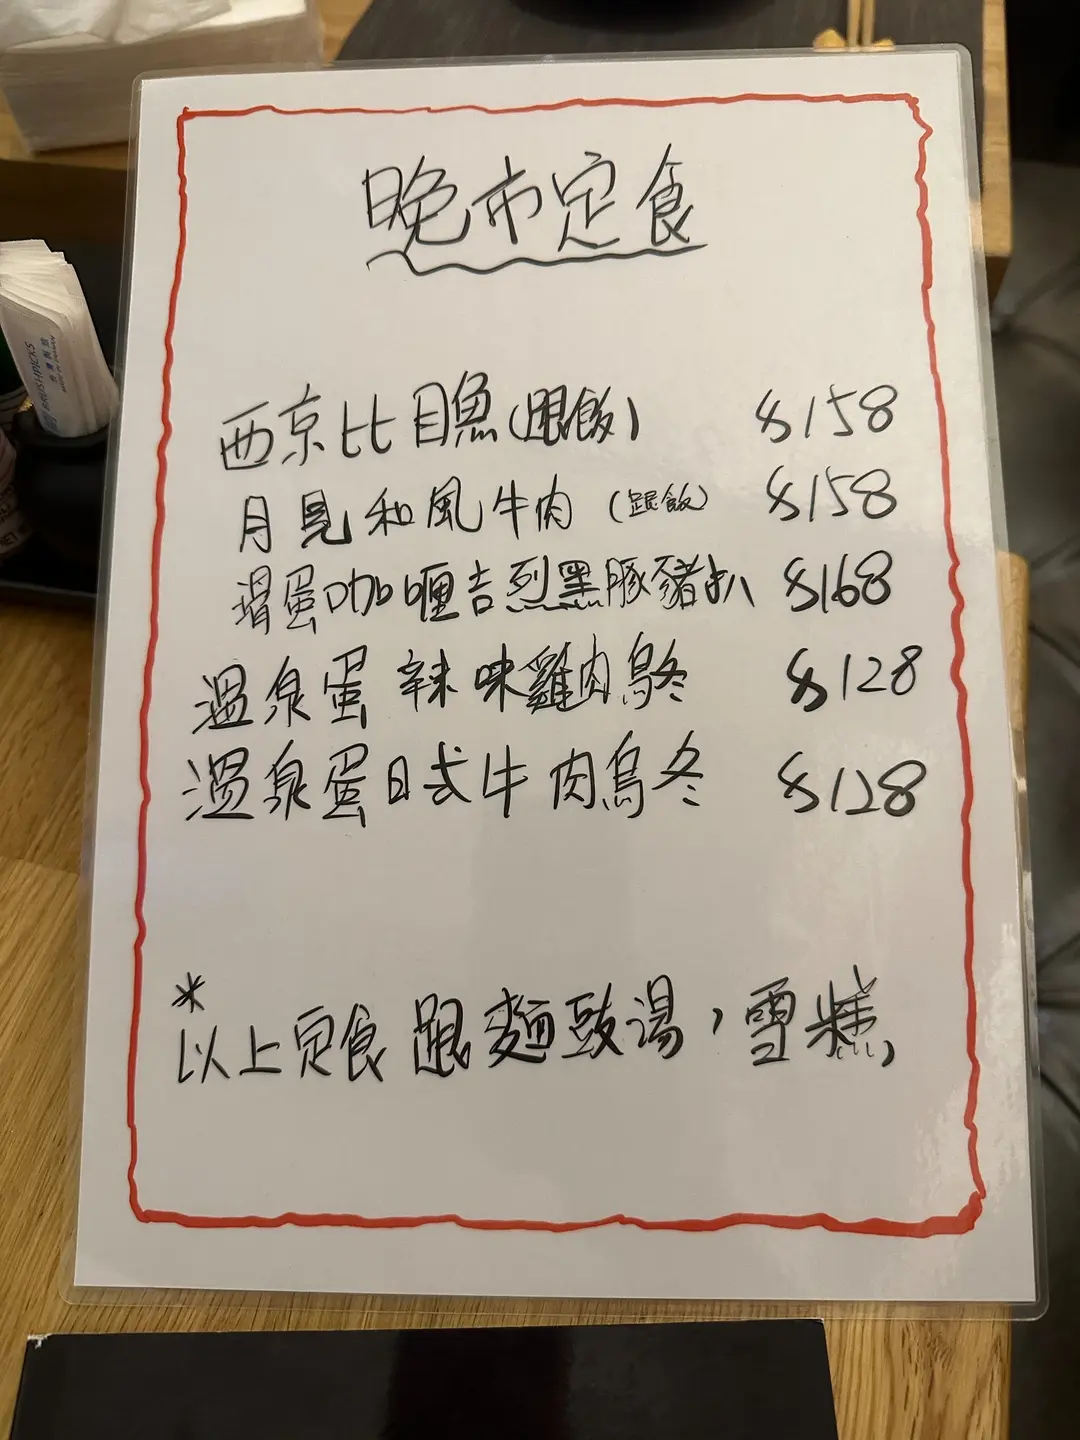 晚市定食
西京比目魚(跟飯) $158
月見和風牛肉(跟飯) $158
滑蛋咖喱吉烈黑豚豬扒 $168
溫泉蛋辣味雞肉烏冬 $128
溫泉蛋日式牛肉烏冬 $128
*
以上定食跟麵豉湯,雪糕
BRUSHPICKS